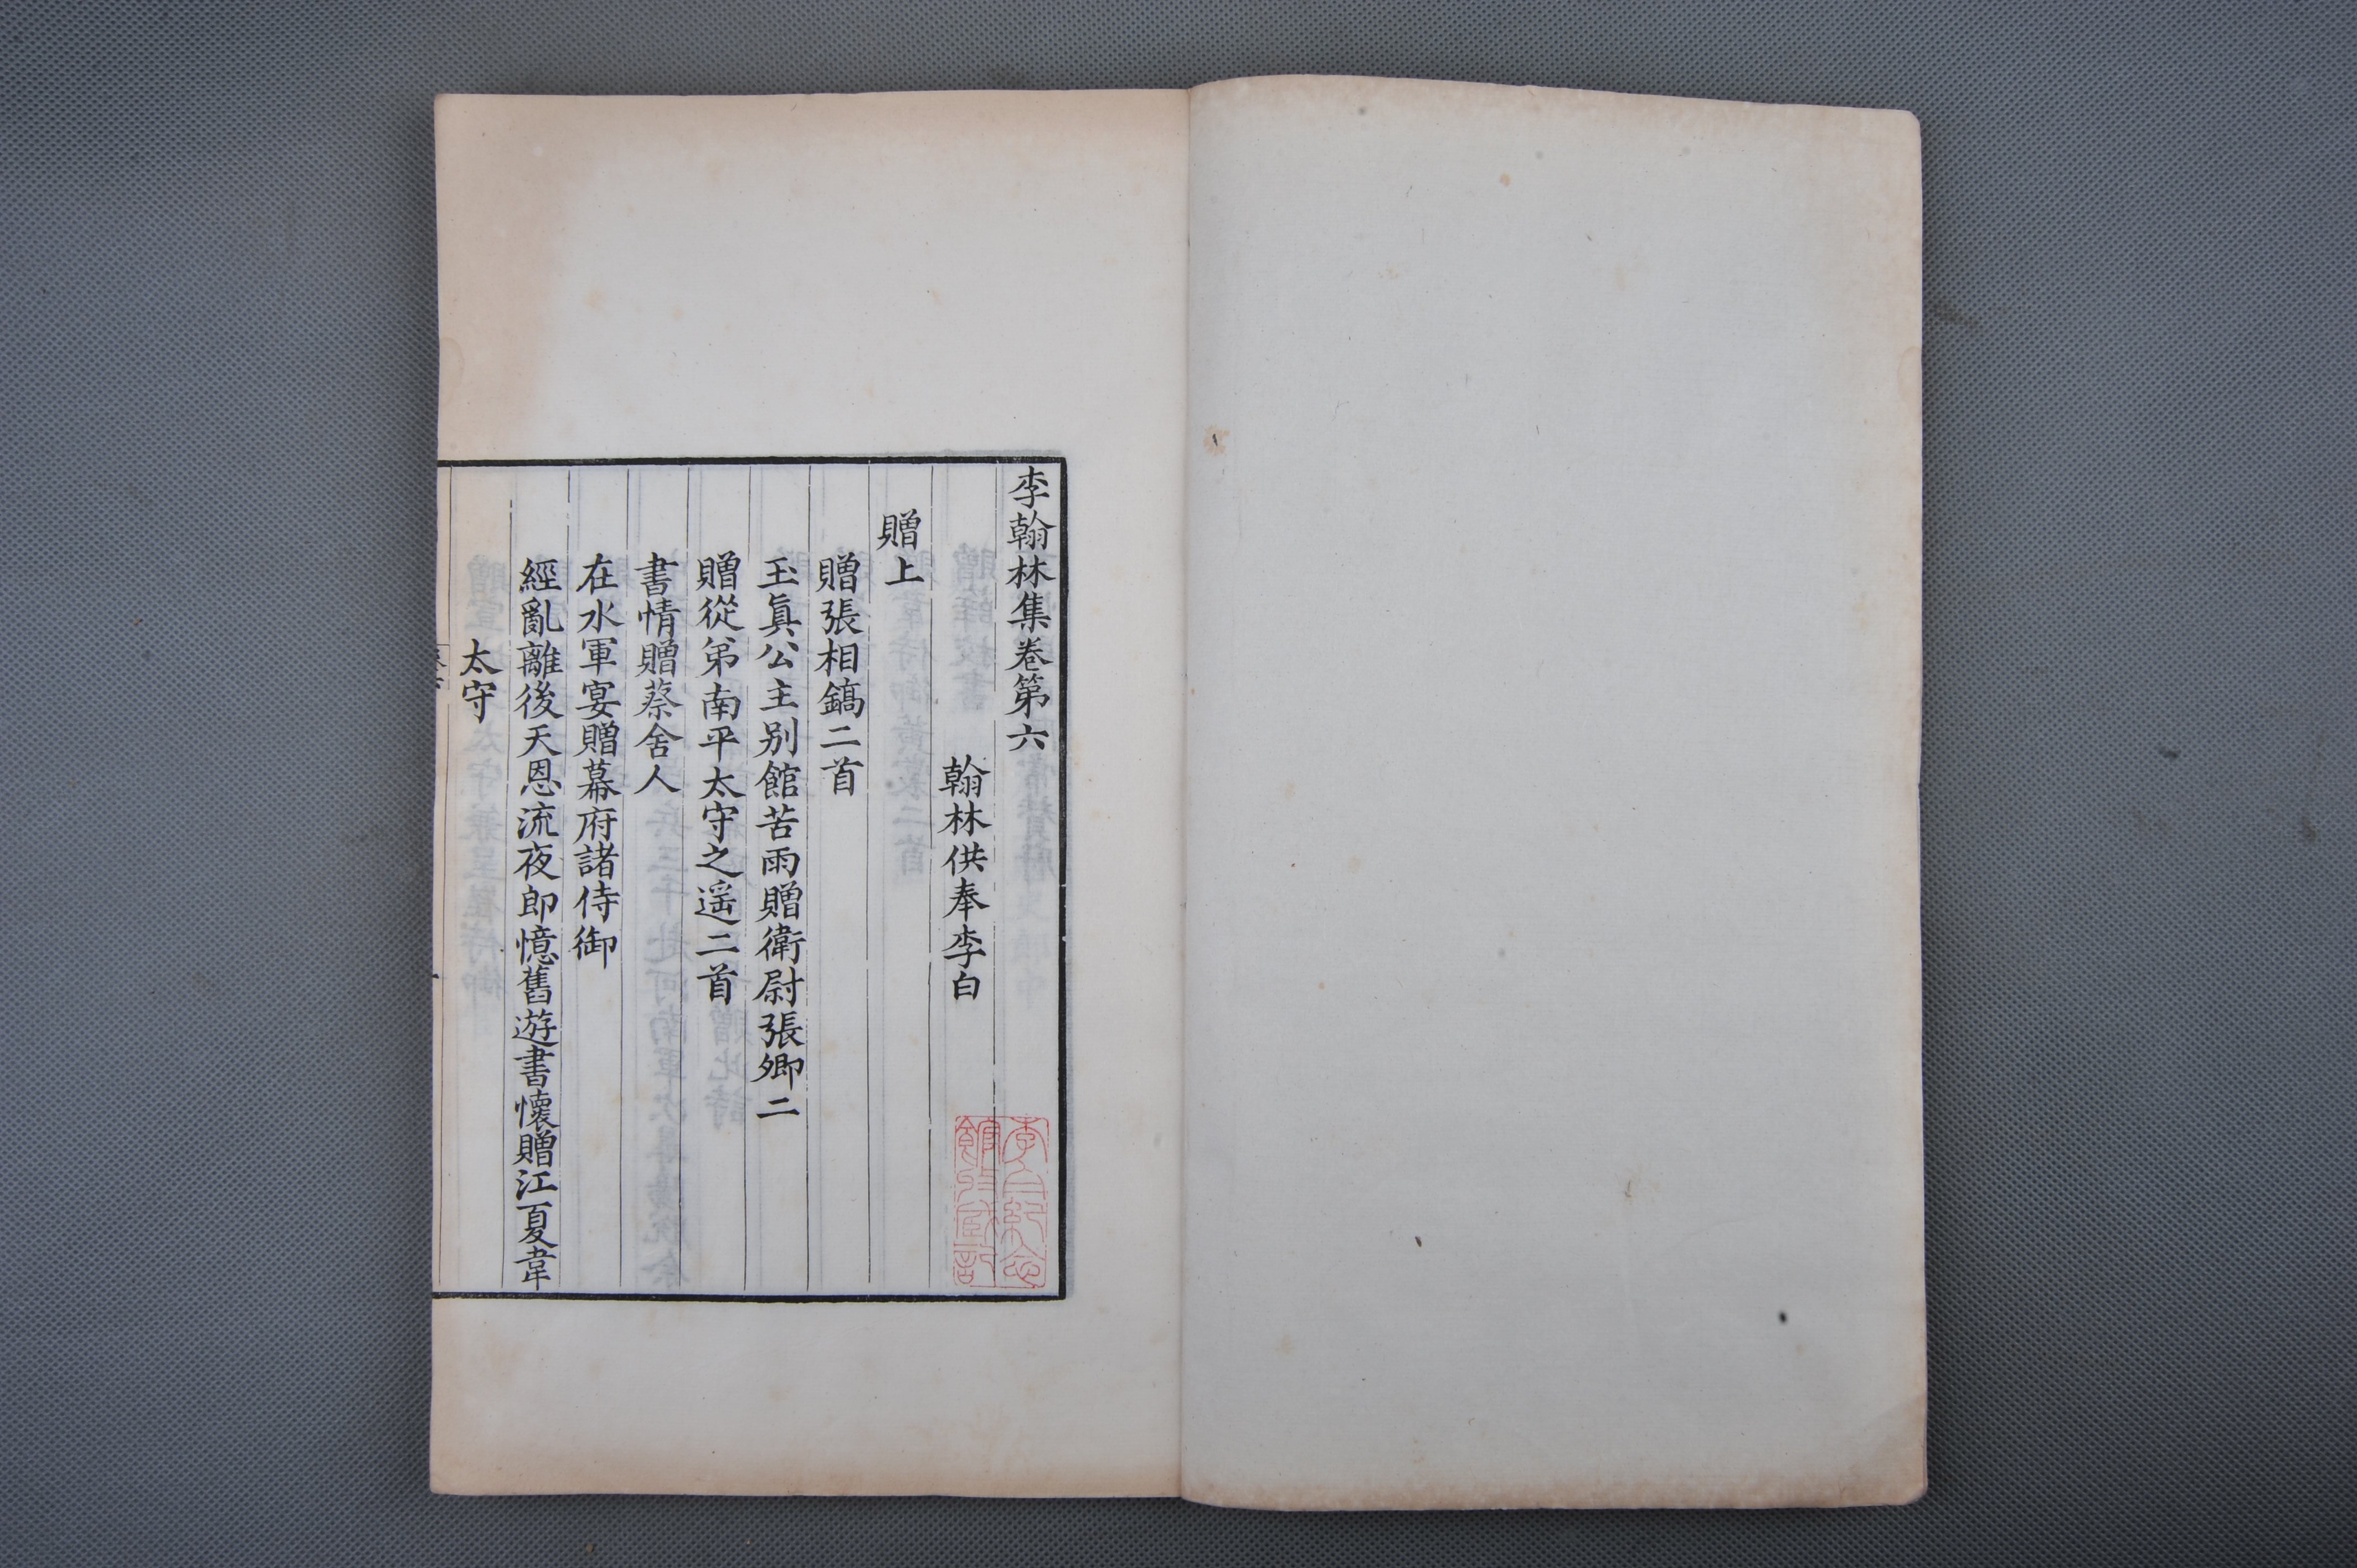 李翰林集卷第六
翰林供奉李白
贈上
贈張相鎬二首
玉眞公主别館苦雨贈衛尉張卿二
贈從弟南平太守之遥二首
書情贈蔡舍人
在水軍宴贈幕府諸侍御
經亂離後天恩流夜郎憶舊遊書懷贈江夏韋
太守
李白紀念
館珍藏記